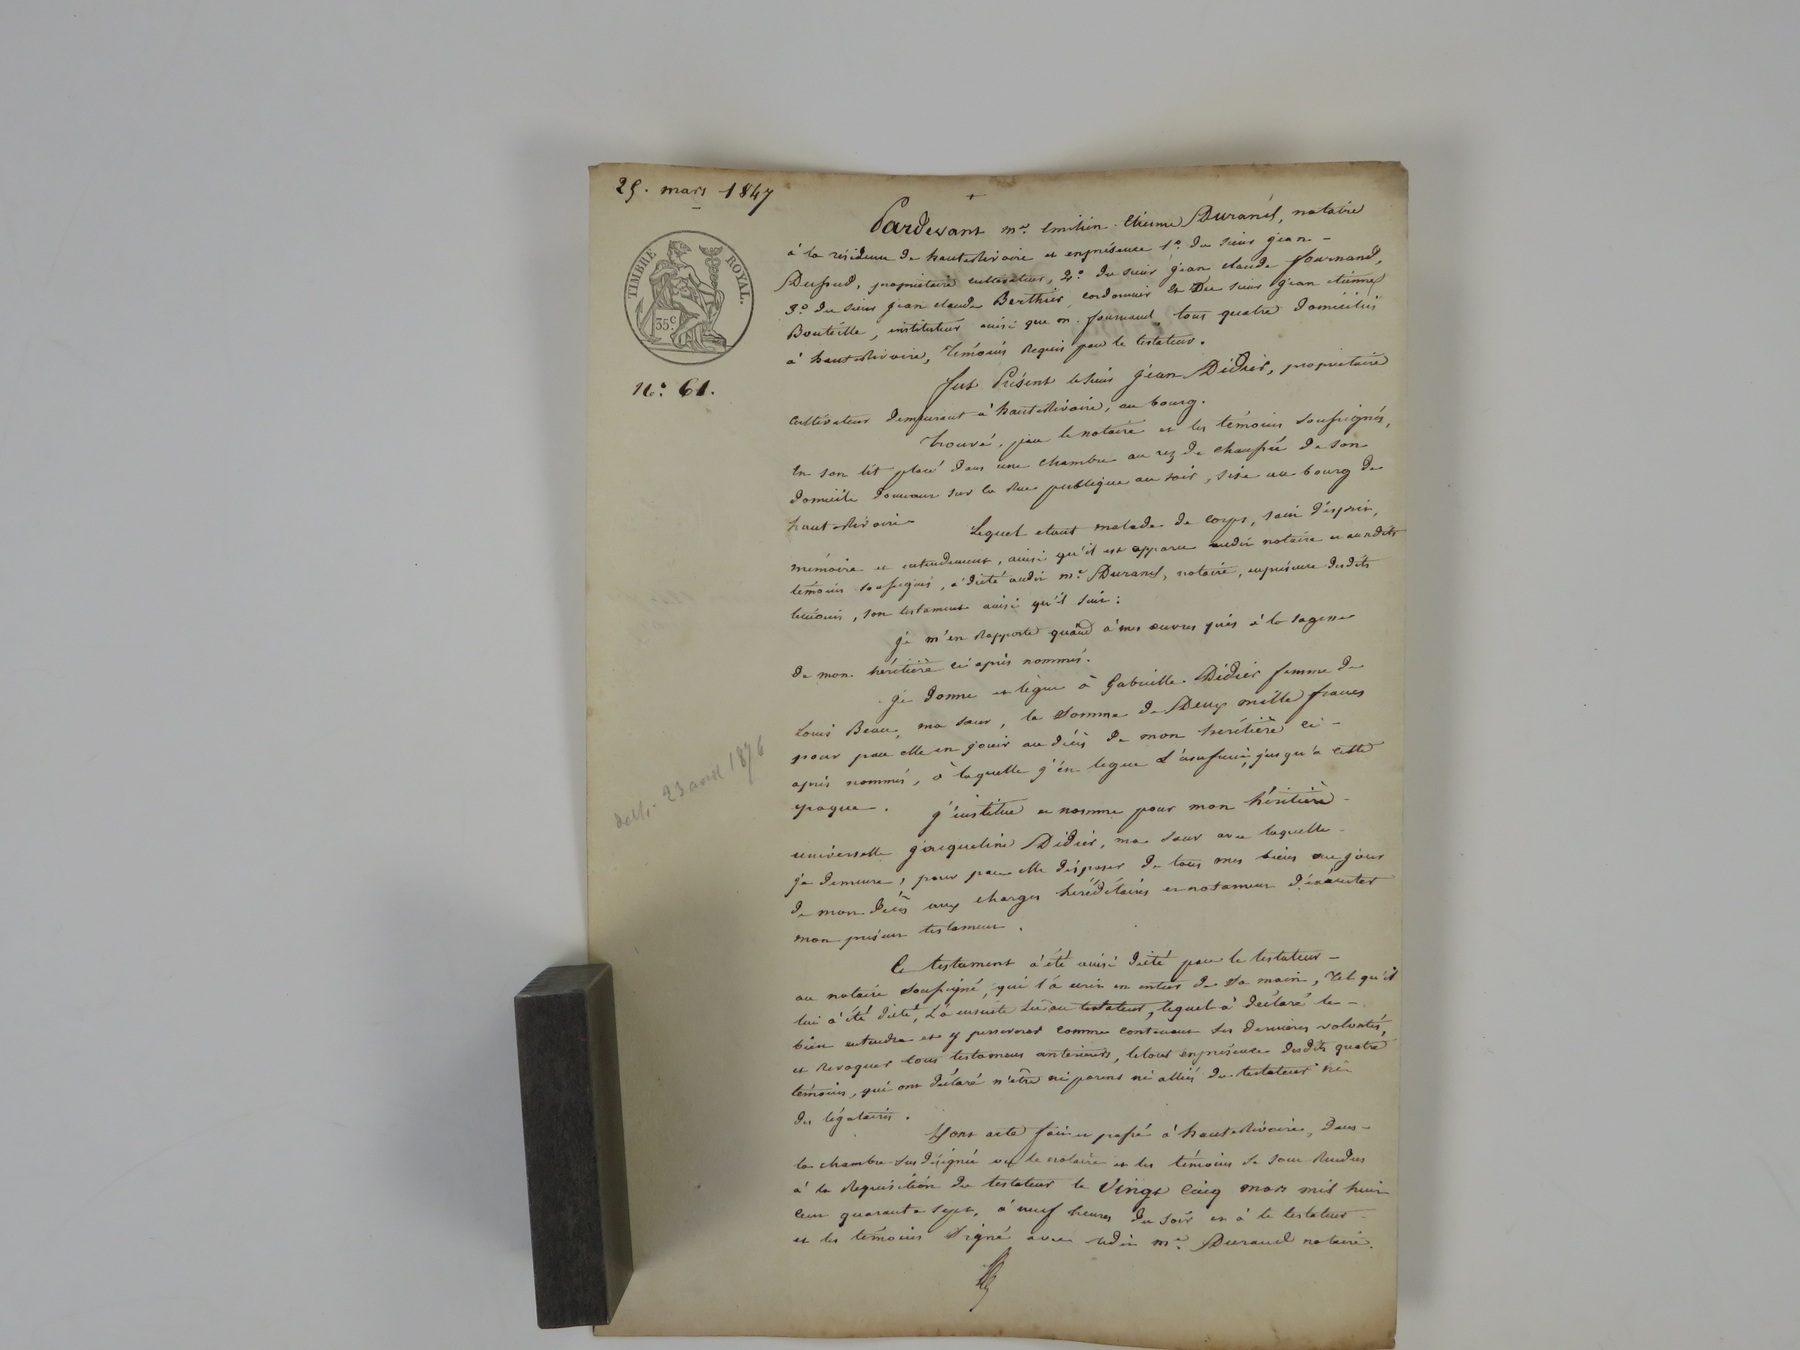 25. mars 1847
TIMBRE ROYAL.
35 c
N.° 61.
Pardevant me. Emilien Etienne Durand, notaire
à la résidence de hauterivoire et en présence 1.° du sieur jean
Dussud, propriétaire cultivateur, 2.° du sieur jean claude fournand,
3.° du sieur jean claude Berthier cordonnier & Du sieur jean étienne
Bouteille, instituteur ainsi que m. fournaud, tous quatre domiciliés
à hauterivoire, témoins requis par le testateur.
fut Présent le sieur jean Didier, propriétaire
cultivateur demeurant à hauterivoire, au bourg.
trouvé, par le notaire et les témoins soussignés,
en son lit placé dans une chambre au rez de chaussée de son
domicile donnant sur la rue publique au soir, sise au bourg de
hauterivoire
Lequel étant malade de corps, sain d'esprit,
mémoire et entendement, ainsi qu'il est apparu audit notaire et auxdits
témoins soussignés, a dicté audit me. Durand, notaire, en présence desdits
témoins, son testament ainsi qu'il suit :
je m'en rapporte quand à mes œuvres pies à la sagesse
de mon héritière ci après nommée.
je donne et lègue à Gabrielle Didier femme de
Louis Beau, ma sœur, la somme de Deux mille francs
pour par elle en jouir au décès de mon héritière ci-
après nommée, à laquelle j'en legue l'usufruit jusqu'à cette
époque.
j'institue et nomme pour mon héritière
universelle jacqueline Didier, ma sœur avec laquelle
je demeure, pour par elle disposer de tous mes biens au jour
de mon décès aux charges héréditaires et notamment d'exécuter
mon présent testament.
delle 23 avril 1876
Ce testament a été ainsi dicté par le testateur
au notaire soussigné, qui l'a écrit en entier de sa main, tel qu'il
lui a été dicté, l'a ensuite lu au testateur, lequel a déclaré le
bien entendre et y persévérer comme contenant ses dernières volontés,
et révoquer tous testamens antérieurs, le tout en présence desdits quatre
témoins, qui ont déclaré n'être ni parens ni alliés du testateur ni
des légataires.
Dont acte fait et passé à hauterivoire, dans
la chambre susdésignée où le notaire et les témoins se sont rendus
à la requisition du testateur le Vingt cinq mars mil huit
cent quarante sept, à neuf heures du soir et a le testateur
et les témoins signé avec ledit me. Durand notaire.